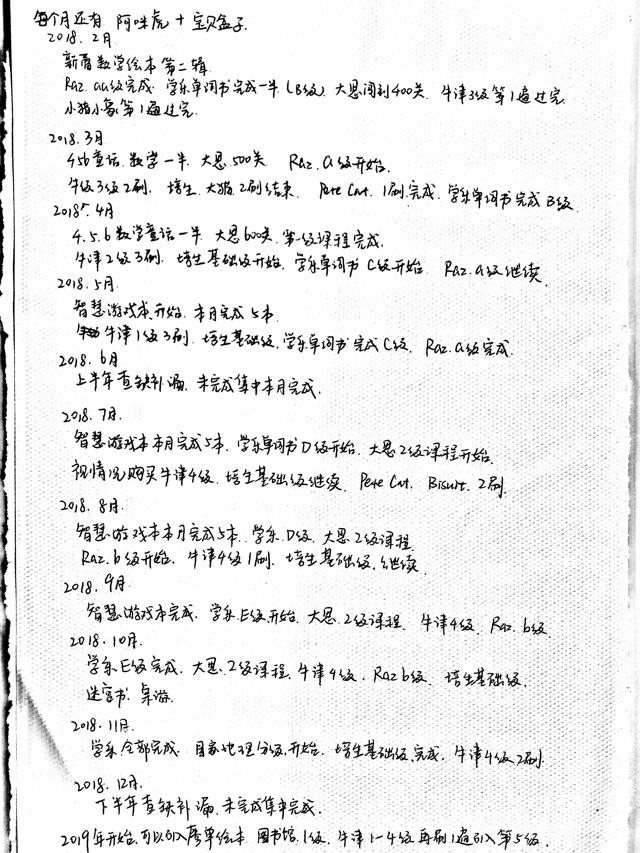 每个月还有 阿咪虎 + 宝贝盒子.
2018. 2月
新蕾数学绘本第二辑
Raz. aa级完成. 学乐单词书完成一半 (B级). 大恩闯到400关. 牛津3级第1遍过完
小猪小象第1遍过完.
2018. 3月
456童话.数学一半. 大恩500关 Raz. a级开始.
牛级3级2刷. 培生. 大猫2刷结束. Pete Cat. 1刷完成. 学乐单词书完成B级
2018. 4月
4.5.6数学童话一半. 大恩600关. 第一级课程完成.
牛津2级3刷. 培生基础级开始. 学乐单词书C级开始. Raz.a级继续.
2018. 5月
智慧游戏本.开始. 本月完成5本.
牛津1级3刷. 培生基础级.学乐单词书完成C级. Raz.a级完成.
2018. 6月
上半年查缺补漏. 未完成集中本月完成.
2018. 7月.
智慧游戏本本月完成5本. 学乐单词书D级开始. 大恩2级课程开始.
视情况购买牛津4级. 培生基础级继续. Pete Cat. Biscuit. 2刷.
2018. 8月.
智慧游戏本本月完成5本. 学乐.D级. 大恩2级课程
Raz.b级开始. 牛津4级1刷. 培生基础级.继续.
2018. 9月
智慧游戏本完成. 学乐E级开始. 大恩.2级课程. 牛津4级. Raz. b级.
2018. 10月.
学乐E级完成. 大恩.2级课程.牛津4级. Raz b级. 培生基础级.
迷宫书. 桌游.
2018. 11月.
学乐全部完成. 国家地理分级.开始. 培生基础级.完成. 牛津4级2刷.
2018. 12月.
下半年查缺补漏.未完成集中完成.
2019年开始.可以引入廖单绘本 图书馆.1级. 牛津1-4级再刷1遍引入第5级.